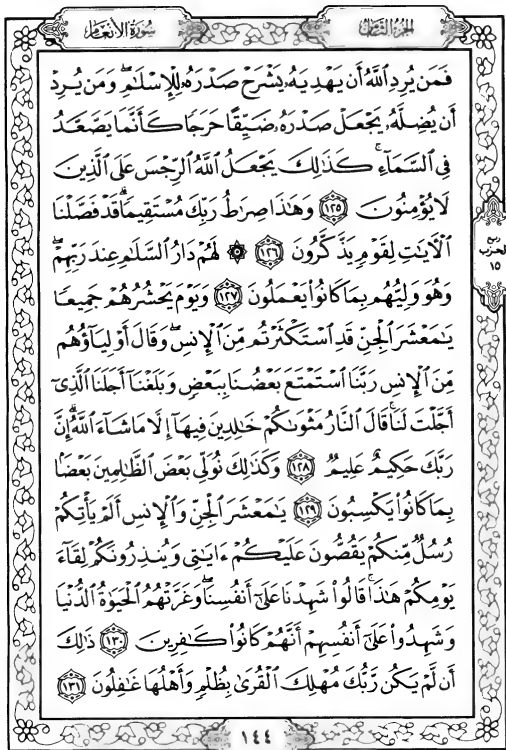 سُورَةُ الأَنْعَامِ
الجُزْءُ الثَّامِنُ
فَمَن يُرِدِ ٱللَّهُ أَن يَهْدِيَهُۥ يَشْرَحْ صَدْرَهُۥ لِلْإِسْلَٰمِۖ وَمَن يُرِدْ
أَن يُضِلَّهُۥ يَجْعَلْ صَدْرَهُۥ ضَيِّقًا حَرَجًا كَأَنَّمَا يَصَّعَّدُ
فِي ٱلسَّمَآءِۚ كَذَٰلِكَ يَجْعَلُ ٱللَّهُ ٱلرِّجْسَ عَلَى ٱلَّذِينَ
لَا يُؤْمِنُونَ ١٢٥ وَهَٰذَا صِرَٰطُ رَبِّكَ مُسْتَقِيمًاۗ قَدْ فَصَّلْنَا
ٱلْأٓيَٰتِ لِقَوْمٍ يَذَّكَّرُونَ ١٢٦ ۞ لَهُمْ دَارُ ٱلسَّلَٰمِ عِندَ رَبِّهِمْۖ
وَهُوَ وَلِيُّهُم بِمَا كَانُوا۟ يَعْمَلُونَ ١٢٧ وَيَوْمَ يَحْشُرُهُمْ جَمِيعًا
يَٰمَعْشَرَ ٱلْجِنِّ قَدِ ٱسْتَكْثَرْتُم مِّنَ ٱلْإِنسِۖ وَقَالَ أَوْلِيَآؤُهُم
مِّنَ ٱلْإِنسِ رَبَّنَا ٱسْتَمْتَعَ بَعْضُنَا بِبَعْضٍ وَبَلَغْنَآ أَجَلَنَا ٱلَّذِىٓ
أَجَّلْتَ لَنَاۚ قَالَ ٱلنَّارُ مَثْوَىٰكُمْ خَٰلِدِينَ فِيهَآ إِلَّا مَا شَآءَ ٱللَّهُۗ إِنَّ
رَبَّكَ حَكِيمٌ عَلِيمٌ ١٢٨ وَكَذَٰلِكَ نُوَلِّى بَعْضَ ٱلظَّٰلِمِينَ بَعْضًۢا
بِمَا كَانُوا۟ يَكْسِبُونَ ١٢٩ يَٰمَعْشَرَ ٱلْجِنِّ وَٱلْإِنسِ أَلَمْ يَأْتِكُمْ
رُسُلٌ مِّنكُمْ يَقُصُّونَ عَلَيْكُمْ ءَايَٰتِى وَيُنذِرُونَكُمْ لِقَآءَ
يَوْمِكُمْ هَٰذَاۚ قَالُوا۟ شَهِدْنَا عَلَىٰٓ أَنفُسِنَاۖ وَغَرَّتْهُمُ ٱلْحَيَوٰةُ ٱلدُّنْيَا
وَشَهِدُوا۟ عَلَىٰٓ أَنفُسِهِمْ أَنَّهُمْ كَانُوا۟ كَٰفِرِينَ ١٣٠ ذَٰلِكَ
أَن لَّمْ يَكُن رَّبُّكَ مُهْلِكَ ٱلْقُرَىٰ بِظُلْمٍ وَأَهْلُهَا غَٰفِلُونَ ١٣١
ربع
الحزب
١٥
١٤٤